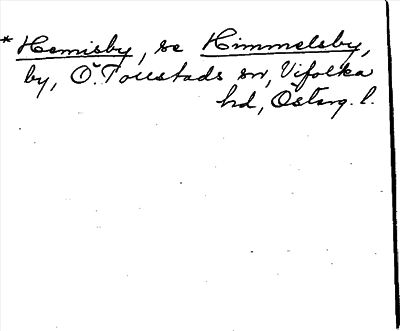 * Hemisby, se Himmelsby,
by, Ö. Tollstads sn, Vifolka
hd, Österg. l.